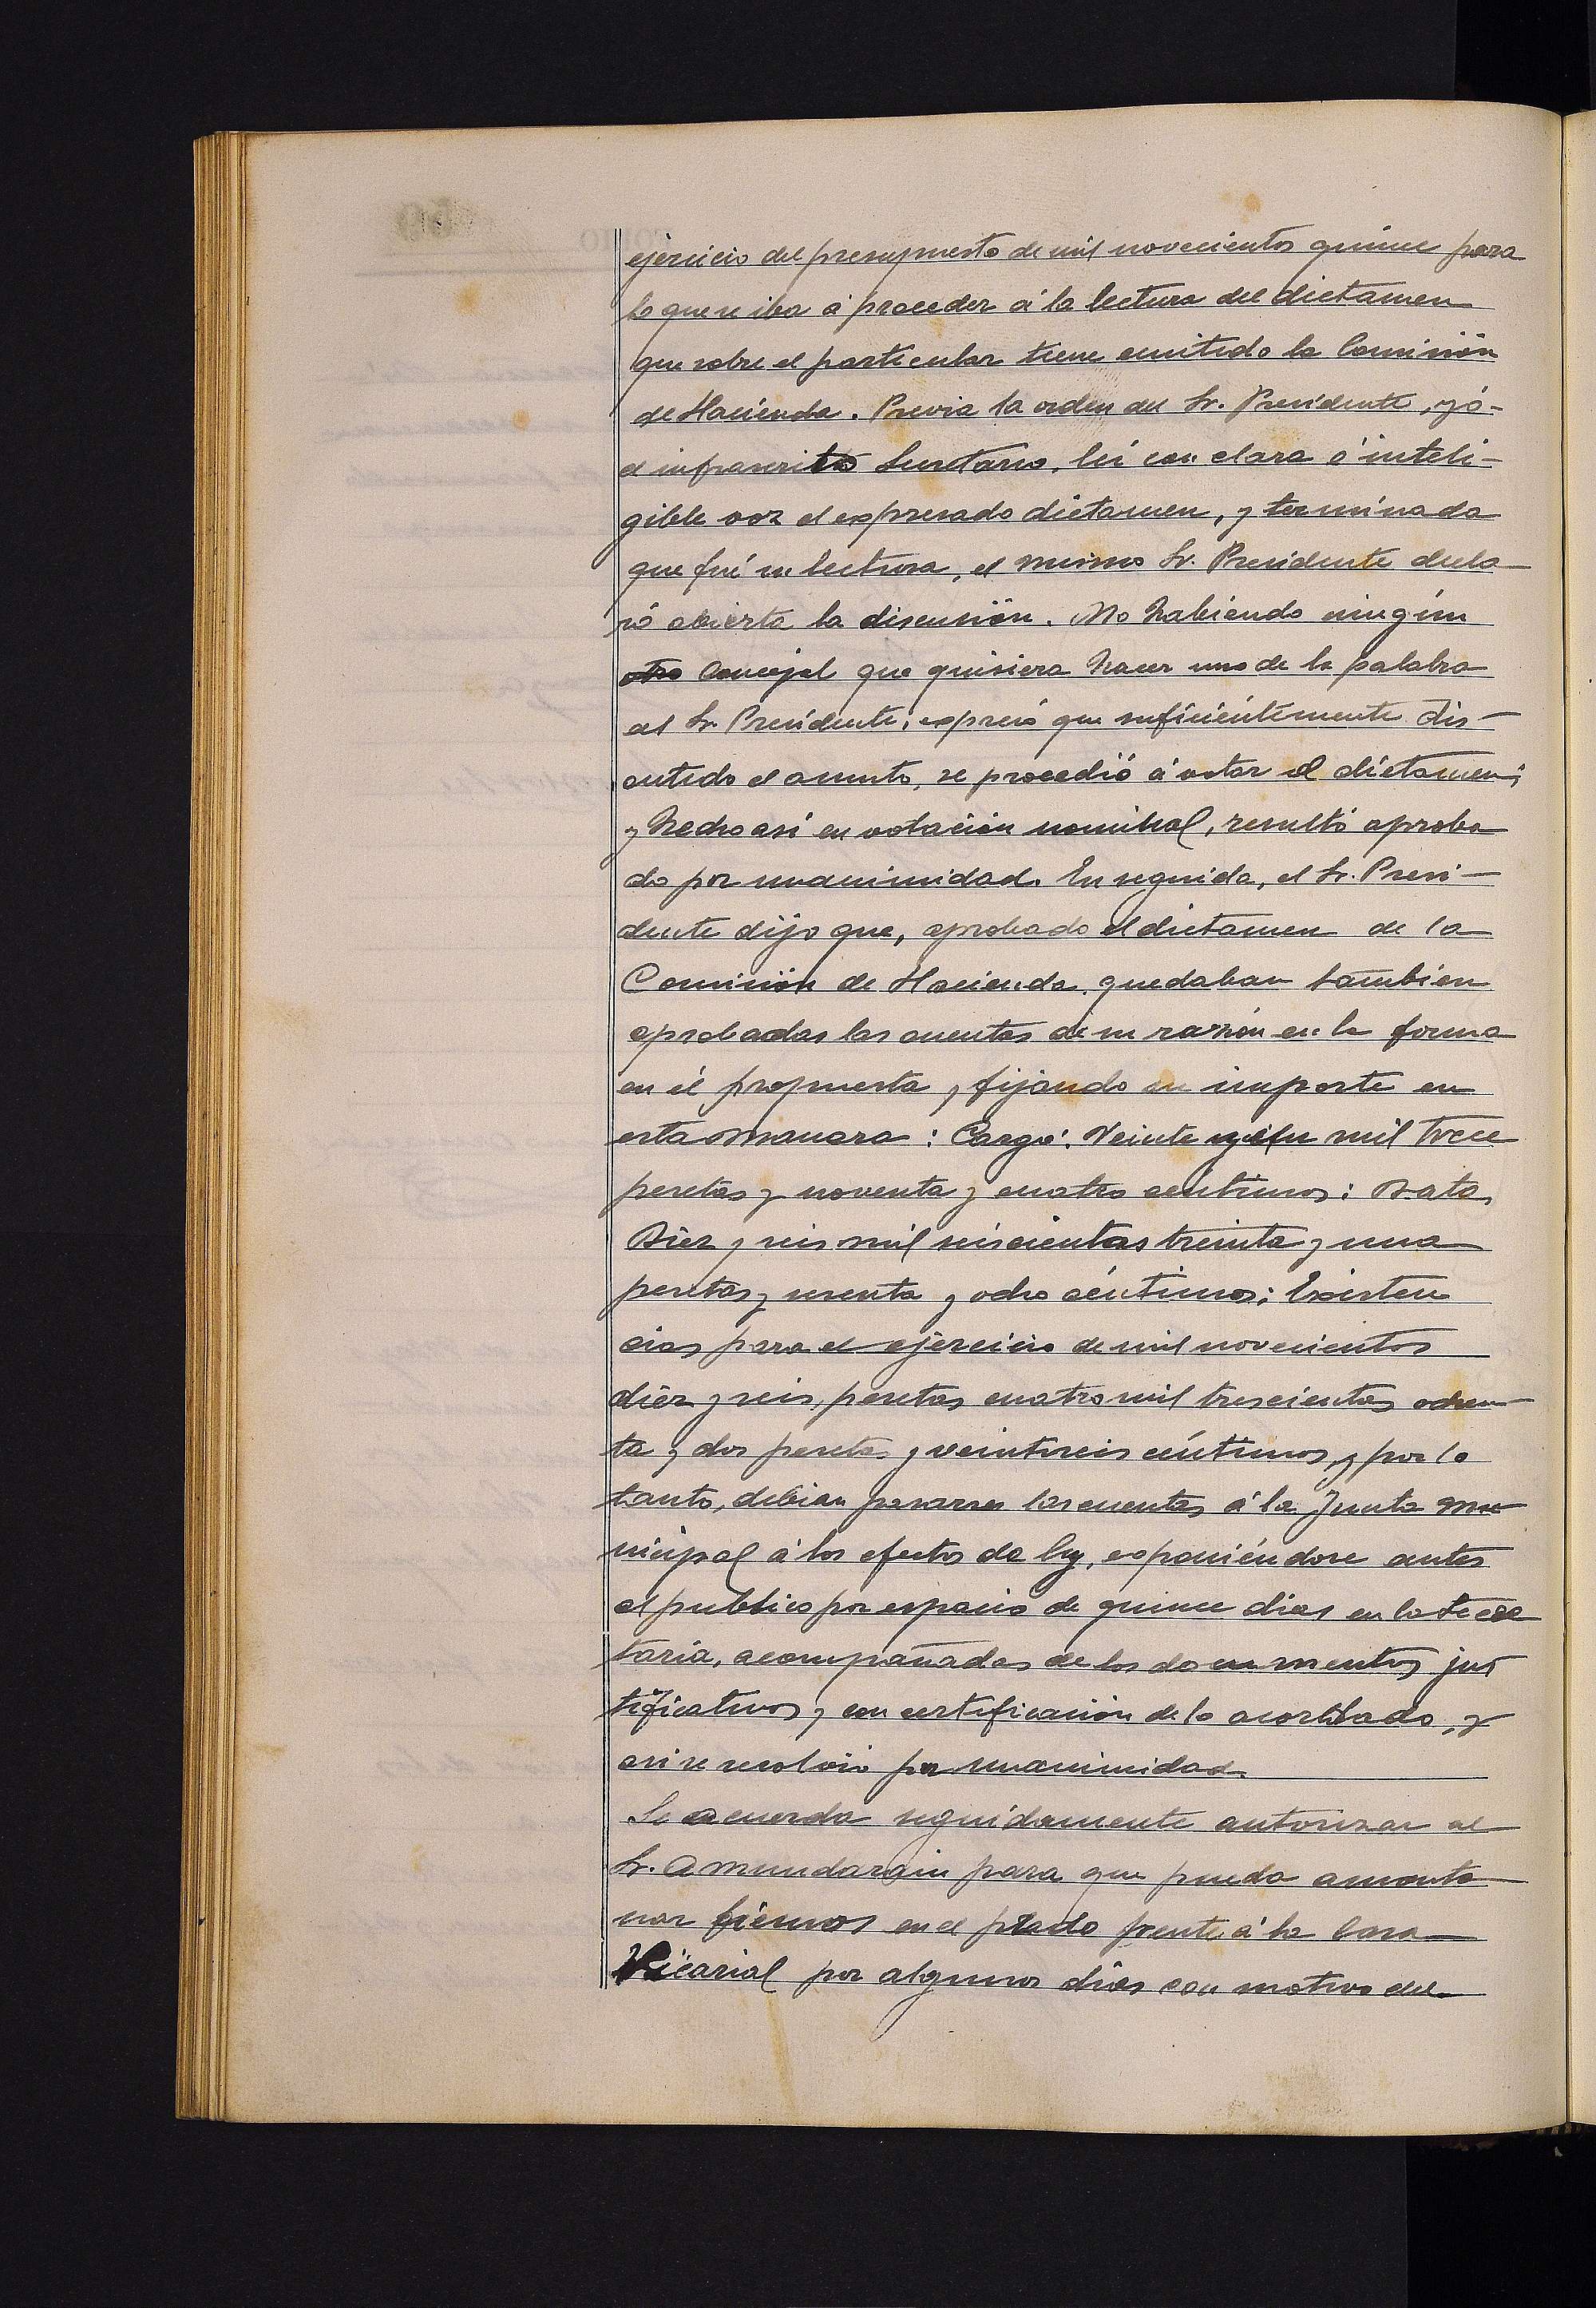 ejercicio del presupuesto de mil novecientos quince para
lo que se iba á proceder á la lectura del dictamen
que sobre el particular tiene emitido la Comisión
de Hacienda. Previa la orden del Sr. Presidente, yó
el infrascrito Secretario, leí con clara é inteli-
gible voz el expresado dictamen, y terminada
que fué su lectura, el mismo Sr. Presidente decla-
ró abierta la discusión. No habiendo ningún
otro Concejal que quisiera hacer uso de la palabra
el Sr. Presidente, expresó que suficientemente dis-
cutido el asunto, se procedió á votar el dictamen;
y hecho así en votación nominal, resultó aproba
do por unanimidad. En seguida, el Sr. Presi-
dente dijo que, aprobado el dictamen de la
Comisión de Hacienda quedaban tambien
aprobadas las cuentas de su razón en la forma
en él propuesta y fijando su importe en
esta manara: Cargo: Veinte y un mil trece
pesetas y noventa y cuatro centimos: Data,
Diez y seis mil seiscientas treinta y una
pesetas y sesenta y ocho céntimos; Existen
cias para el ejercicio de mil novecientos
diez y seis, pesetas cuatro mil trescientas ochen
ta y dos pesetas y veintiseis céntimos, y por lo
tanto, debian pasarse las cuentas á la Junta mu
nicipal á los efectos de ley, exponiéndose antes
al publico por espacio de quince dias en la Secre
taría, acompañadas de los documentos jus
tificativos y con certificación de lo acordado, y
asi se resolvió por unanimidad.
Se acuerda seguidamente autorizar al
Sr. Amundarain para que pueda amonto
nar fiemos en el prado frente á la Casa
Vicarial por algunos días con motivo del